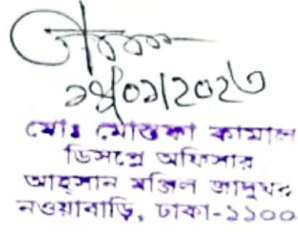 ০১/২০২৩
মোঃ মোস্তফা কামাল
ডিসপ্লে অফিসার
আহসান মঞ্জিল জাদুঘর
নওয়াবাড়ি, ঢাকা-১১০০